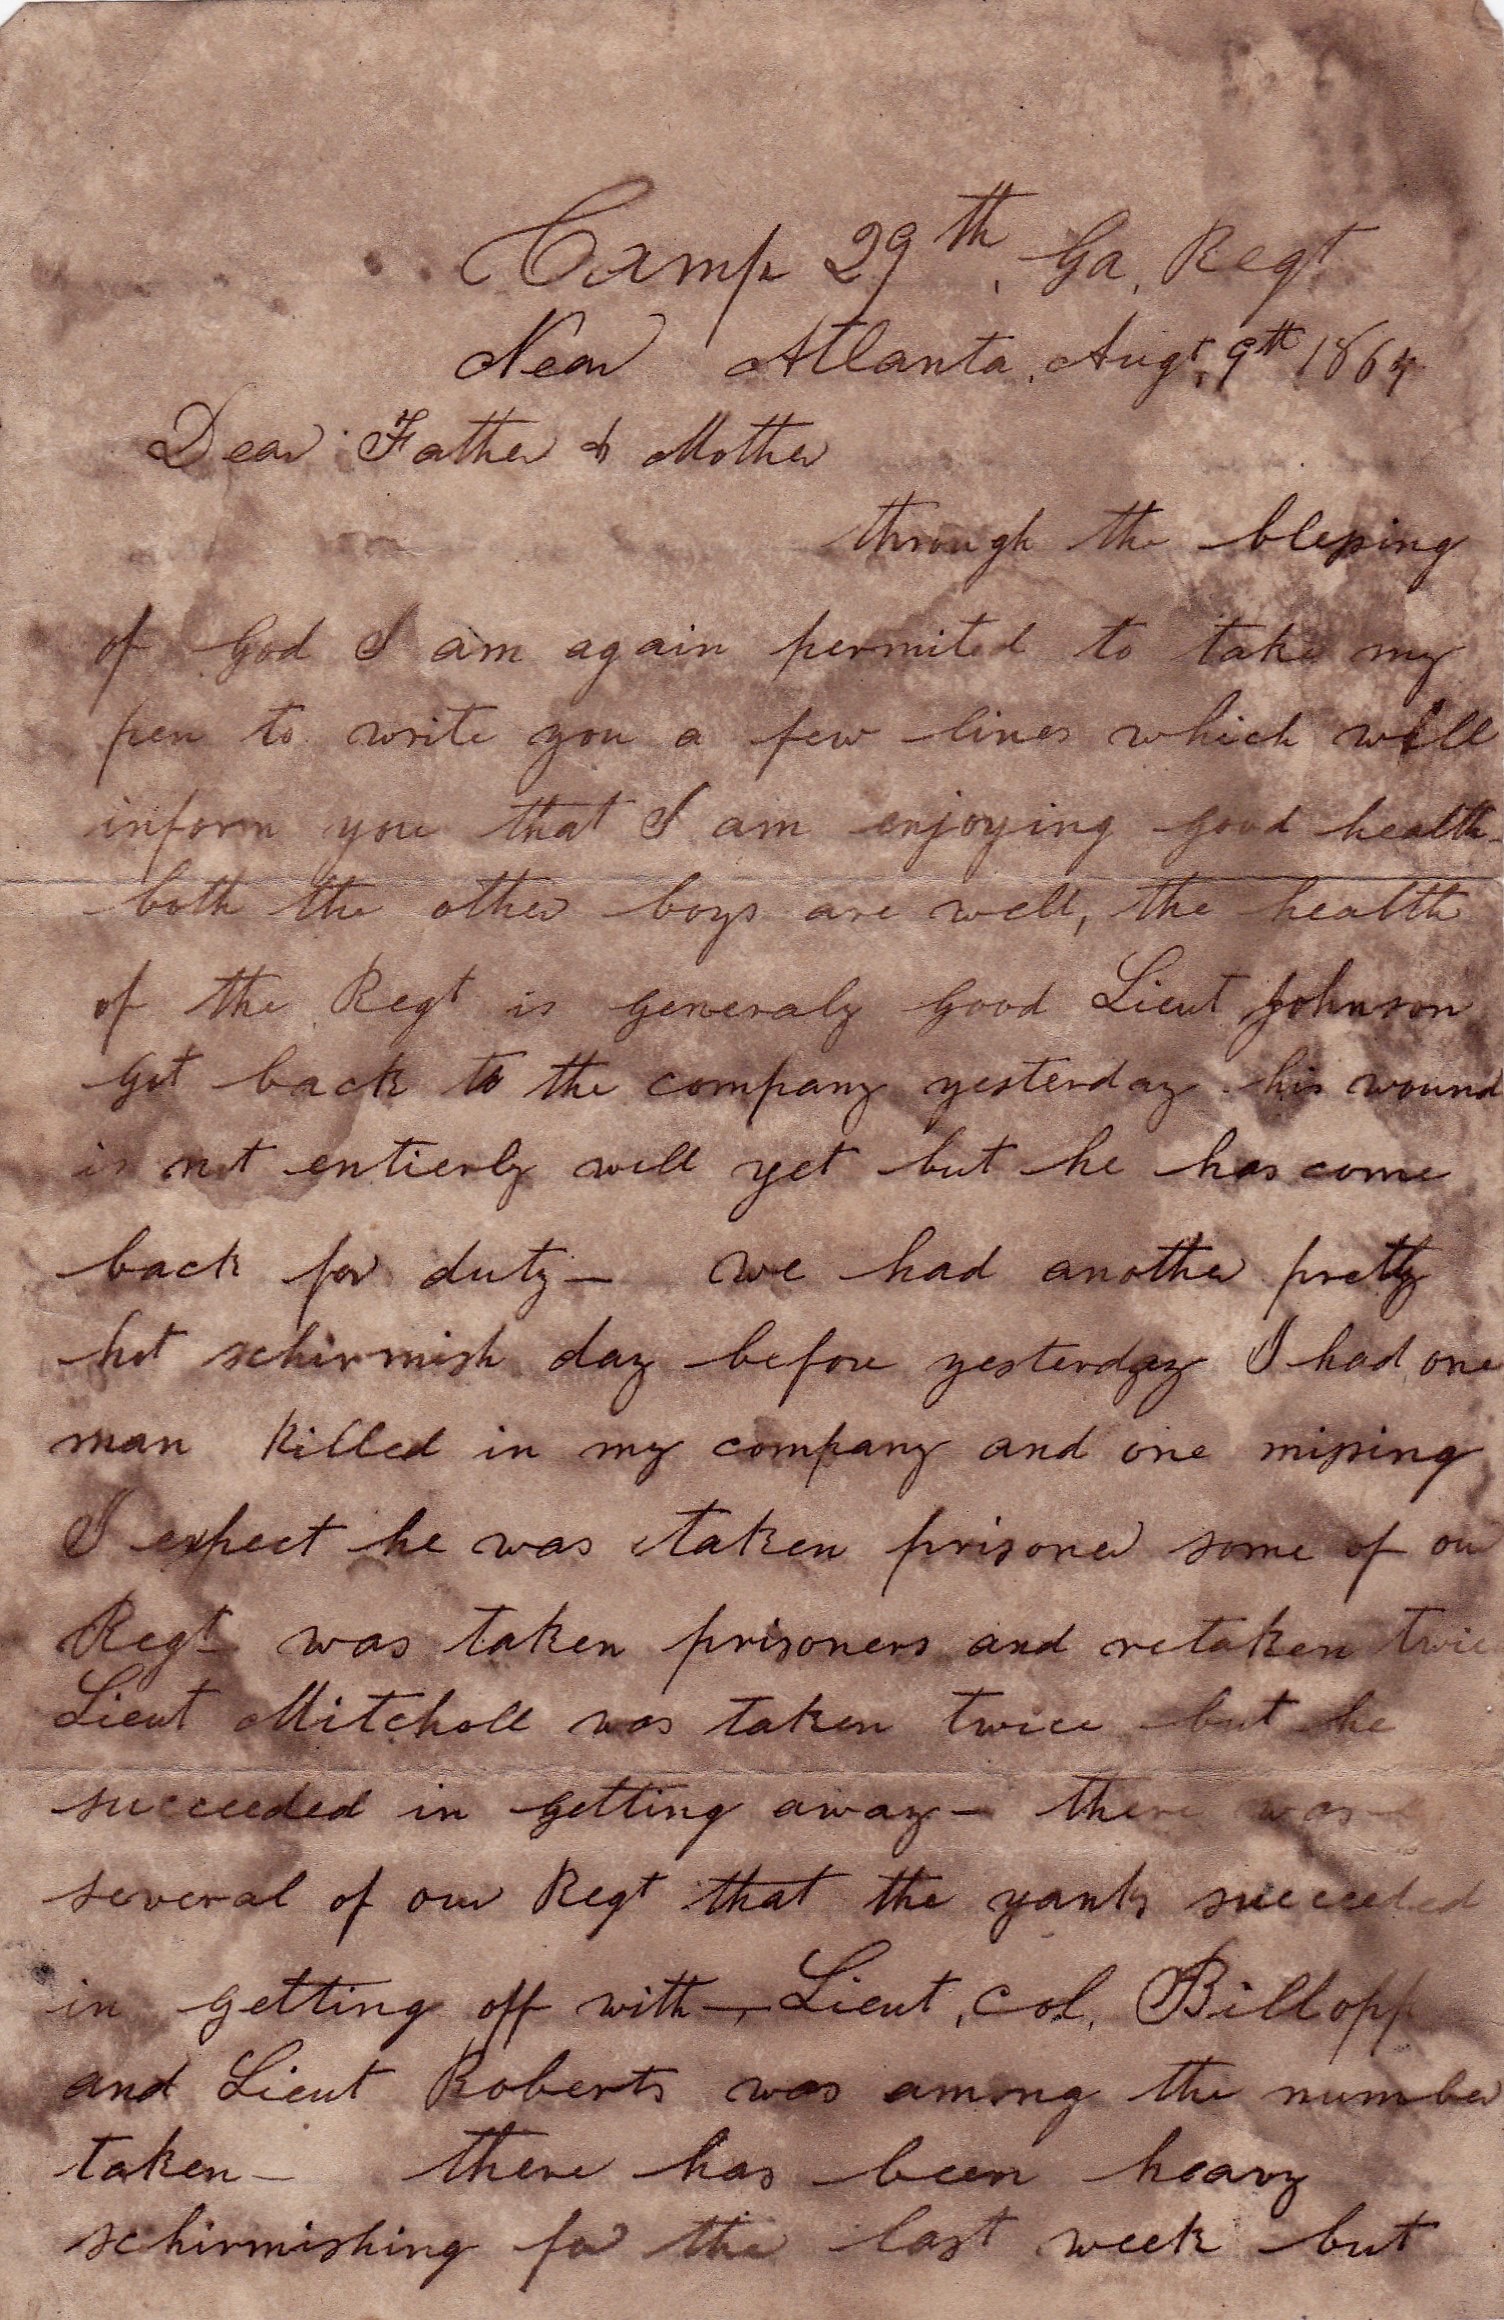 Camp 29th, Ga, Regt
Near Atlanta, Augt, 9th 1864
Dear Father & Mother
through the blessing
of God I am again permited to take my
pen to write you a few lines which will
inform you that I am enjoying good health-
both the other boys are well, the health
of the Regt is generaly good Lieut Johnson
got back to the company yesterday his wound
is not entierly well yet but he has come
back for duty— we had another pretty
hot schirmish day before yesterday I had one
man killed in my company and one missing
I expect he was taken prisoner some of our
Regt was taken prisoners and retaken twice
Lieut Mitchell was taken twice but he
succeeded in getting away— there was
several of our Regt that the yanks succeeded
in getting off with—, Lieut, Col, Billopp
and Lieut Roberts was among the number
taken— there has been heavy
schirmishing for the last week but